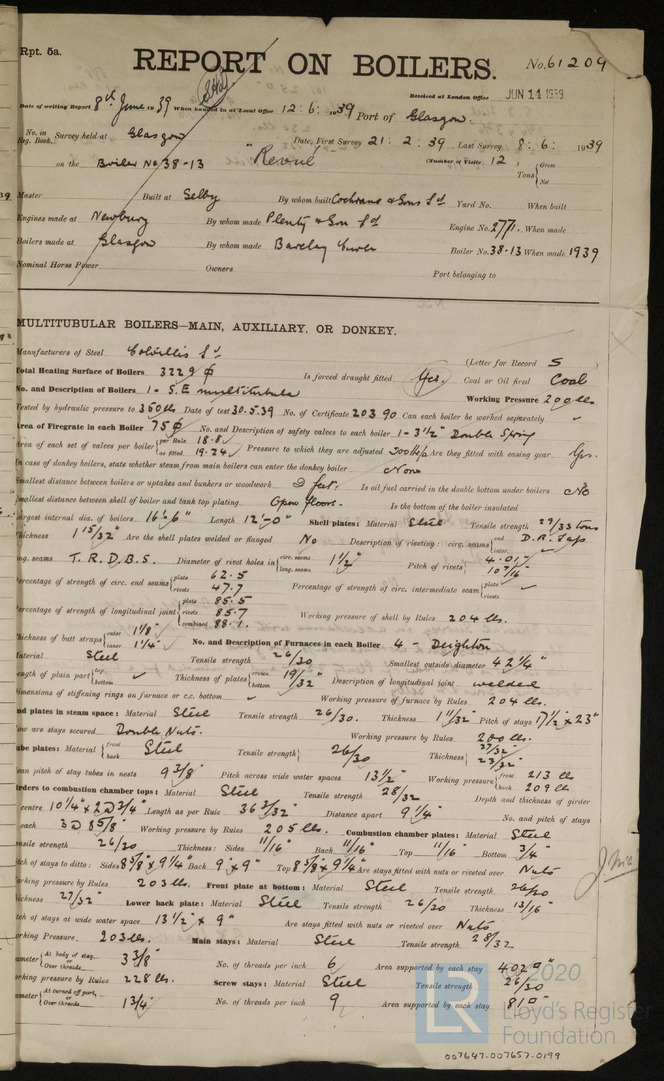 Rpt. 5a.
REPORT ON BOILERS.
No. 61209
Received at London Office JUN 14 1939
Date of writing Report 8th June 1939 When handed in at Local Office 12.6.1939 Port of Glasgow.
No. in Reg. Book. Survey held at Glasgow Date, First Survey 21.2.39 Last Survey 8.6.1939
on the Boiler No 38-13 "Revue" (Number of Visits 12) Tons { Gross Net
Master Built at Selby By whom built Cochrane & Sons Ld Yard No. When built
Engines made at Newbury By whom made Plenty & Son Ld Engine No. 2771. When made
Boilers made at Glasgow By whom made Barclay Curle Boiler No. 38-13 When made 1939
Nominal Horse Power Owners Port belonging to
MULTITUBULAR BOILERS—MAIN, AUXILIARY, OR DONKEY.
Manufacturers of Steel Colvilles Ld. (Letter for Record S
Total Heating Surface of Boilers 3229 ϕ Is forced draught fitted Yes. Coal or Oil fired Coal
No. and Description of Boilers 1 - S.E multitubular Working Pressure 200 lbs
Tested by hydraulic pressure to 350 lbs Date of test 30.5.39 No. of Certificate 20390 Can each boiler be worked separately ✓
Area of Firegrate in each Boiler 75 ϕ No. and Description of safety valves to each boiler 1 - 3½" Double Spring
Area of each set of valves per boiler { per Rule 18.8 as fitted 19.24 ✓ Pressure to which they are adjusted 200 lbs Are they fitted with easing gear Yes.
In case of donkey boilers, state whether steam from main boilers can enter the donkey boiler None
Smallest distance between boilers or uptakes and bunkers or woodwork 2 feet. Is oil fuel carried in the double bottom under boilers No
Smallest distance between shell of boiler and tank top plating Open floors. Is the bottom of the boiler insulated
Largest internal dia. of boilers 16'-6" Length 12'-0" Shell plates: Material Steel Tensile strength 29/33 tons
Thickness 1 15/32" Are the shell plates welded or flanged No Description of riveting: circ. seams { end D.R. Lap inter. ✓
long. seams T.R.D.B.S. Diameter of rivet holes in { circ. seams long. seams 1½" Pitch of rivets { 4.01" 10 7/16"
Percentage of strength of circ. end seams { plate 62.5 rivets 47.7 Percentage of strength of circ. intermediate seam { plate rivets ✓
Percentage of strength of longitudinal joint { plate 85.5 rivets 85.7 combined 88.1. Working pressure of shell by Rules 204 lbs.
Thickness of butt straps { outer 1 1/8" inner 1¼" No. and Description of Furnaces in each Boiler 4 - Deighton
Material Steel Tensile strength 26/30 Smallest outside diameter 42¼"
Length of plain part { top bottom ✓ Thickness of plates { crown bottom 19/32" Description of longitudinal joint welded
Dimensions of stiffening rings on furnace or c.c. bottom ✓ Working pressure of furnace by Rules 204 lbs.
End plates in steam space: Material Steel Tensile strength 26/30. Thickness 1 11/32" Pitch of stays 17½" x 23"
How are stays secured Double Nuts. Working pressure by Rules 200 lbs.
Tube plates: Material { front back Steel Tensile strength { 26/30 Thickness { 27/32" 23/32"
Mean pitch of stay tubes in nests 9 3/8" Pitch across wide water spaces 13½" Working pressure { front 213 lbs back 209 lbs
Girders to combustion chamber tops: Material Steel Tensile strength 28/32 Depth and thickness of girder
at centre 10¼" x 2 @ ¾" Length as per Rule 36 3/32" Distance apart 9¼" No. and pitch of stays
in each 3 @ 8 5/8" Working pressure by Rules 205 lbs. Combustion chamber plates: Material Steel
Tensile strength 26/30 Thickness: Sides 11/16" Back 11/16" Top 11/16" Bottom ¾"
Pitch of stays to ditto: Sides 8 5/8" x 9¼" Back 9" x 9" Top 8 5/8" x 9¼" Are stays fitted with nuts or riveted over Nuts
Working pressure by Rules 203 lbs. Front plate at bottom: Material Steel Tensile strength 26/30
Thickness 27/32" Lower back plate: Material Steel Tensile strength 26/30 Thickness 13/16"
Pitch of stays at wide water space 13½" x 9" Are stays fitted with nuts or riveted over Nuts
Working Pressure 203 lbs. Main stays: Material Steel Tensile strength 28/32
Diameter { At body of stay, or Over threads 3 3/8" No. of threads per inch 6 Area supported by each stay 402 □"
Working pressure by Rules 228 lbs. Screw stays: Material Steel Tensile strength 26/30
Diameter { At turned off part, or Over threads 1¾" No. of threads per inch 9 Area supported by each stay 81 □"
© 2020
LR Lloyd's Register Foundation
007647-007657-0199